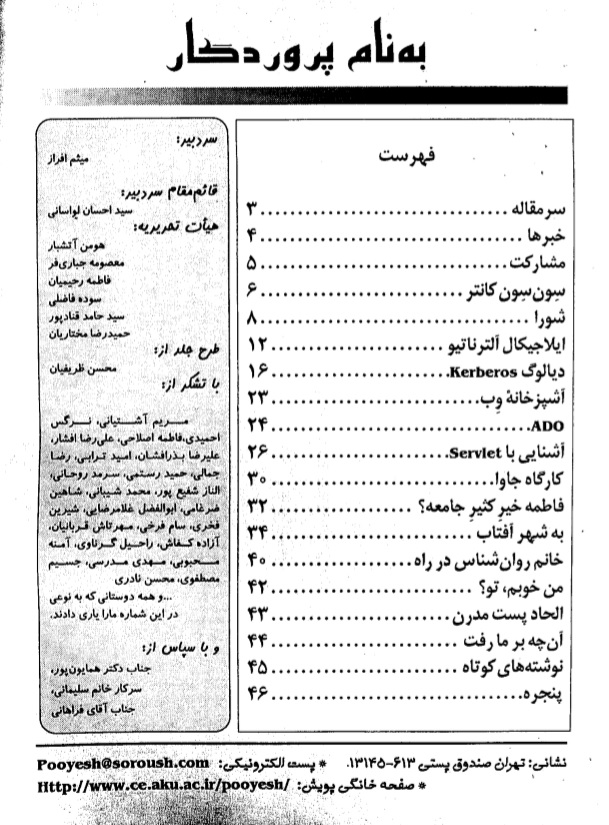 به‌نام پروردگار
فهرست
سرمقاله ۳
خبرها ۴
مشارکت ۵
سِون‌سِون کانتر ۶
شورا ۸
ایلاجیکال آلترناتیو ۱۲
دیالوگ Kerberos ۱۶
آشپزخانهٔ وِب ۲۳
ADO ۲۴
آشنایی با Servlet ۲۶
کارگاه جاوا ۳۰
فاطمه خیرِ کثیرِ جامعه؟ ۳۲
به شهر آفتاب ۳۴
خانم روان‌شناس در راه ۴۰
من خوبم، تو؟ ۴۲
الحاد پست مدرن ۴۳
آن‌چه بر ما رفت ۴۴
نوشته‌های کوتاه ۴۵
پنجره ۴۶
سردبیر:
میثم افراز
قائم‌مقام سردبیر:
سید احسان لواسانی
هیأت تحریریه:
هومن آتشبار
معصومه جباری‌فر
فاطمه رحیمیان
سوده فاضلی
سید حامد قنادپور
حمیدرضا مختاریان
طرح جلد از:
محسن ظریفیان
با تشکر از:
مریم آشتیانی، نرگس
احمیدی،فاطمه اصلاحی، علی‌رضا افشار،
علیرضا بذرافشان، امید ترابی، رضا
جمالی، حمید رستمی، سرمد روحانی،
الناز شفیع پور، محمد شیبانی، شاهین
ضرغامی، ابوالفضل غلامرضایی، شیرین
فخری، سام فرخی، مهرتاش قربانیان،
آزاده کفاش، راحیل گرناوی، آمنه
محبوبی، مهدی مدرسی، جسیم
مصطفوی، محسن نادری
...و همه دوستانی که به نوعی
در این شماره ما را یاری دادند.
و با سپاس از:
جناب دکتر همایون‌پور،
سرکار خانم سلیمانی،
جناب آقای فراهانی
نشانی: تهران صندوق پستی ۶۱۳-۱۳۱۴۵. * پست الکترونیکی: Pooyesh@soroush.com
* صفحه خانگی پویش: Http://www.ce.aku.ac.ir/pooyesh/